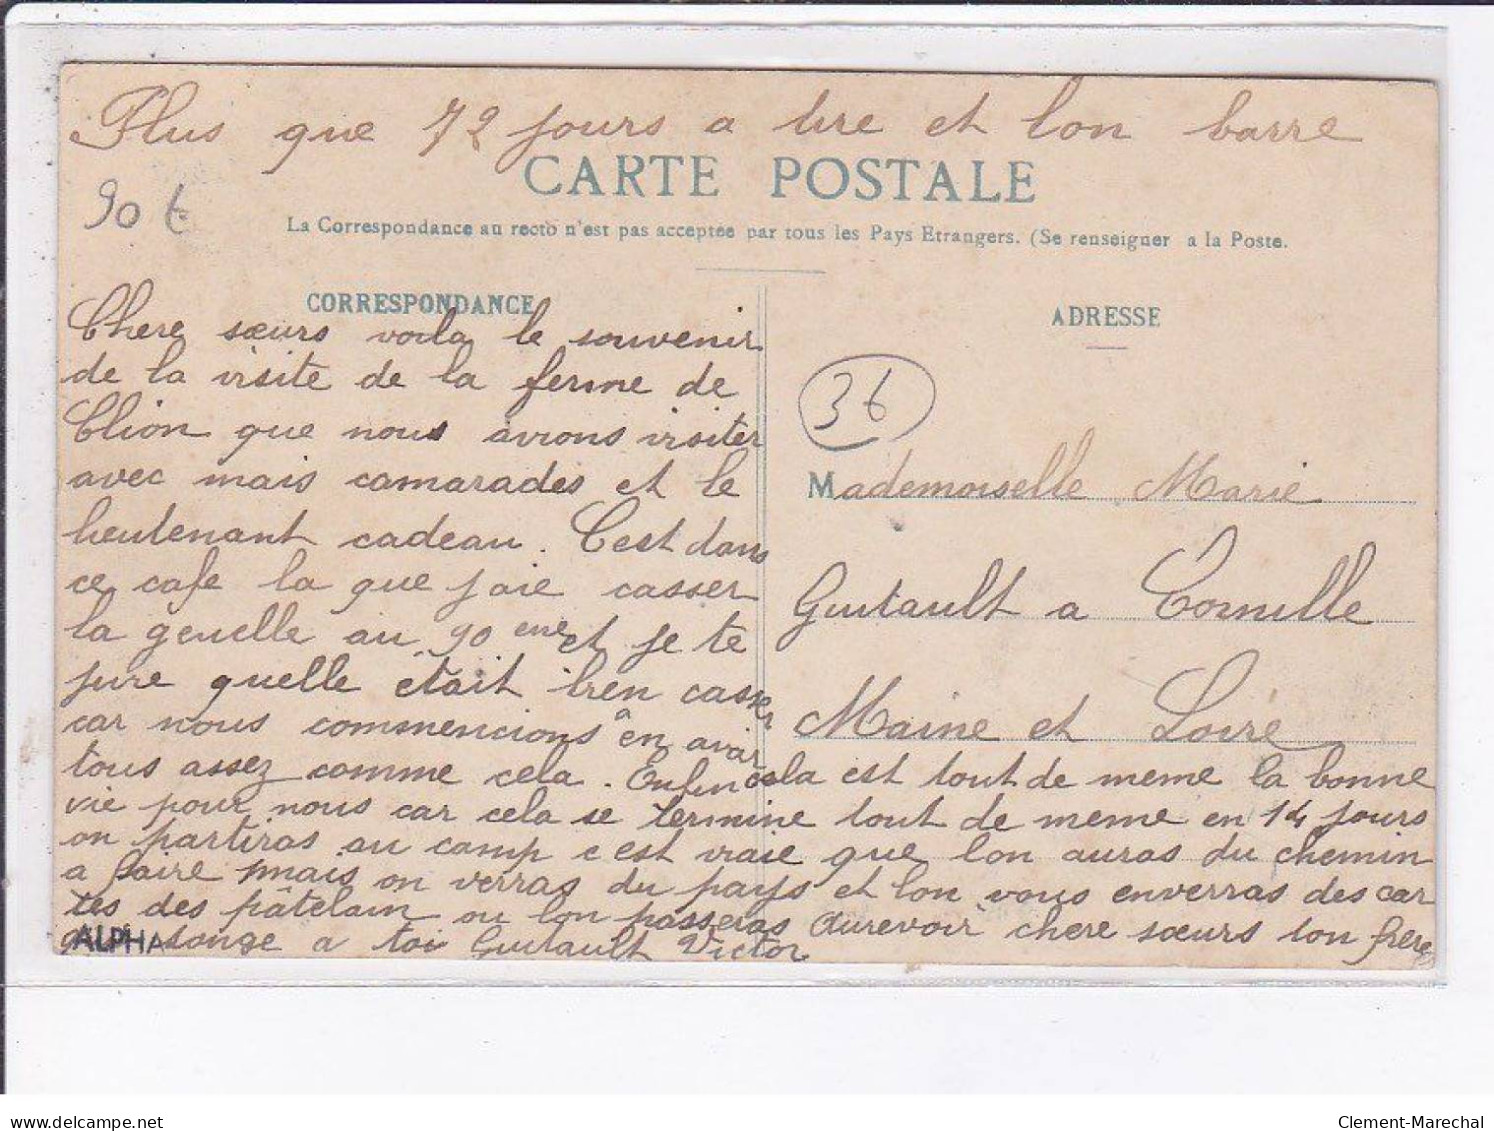 Plus que 72 jours a tire et lon barre
CARTE POSTALE
90 €
La Correspondance au recto n'est pas acceptée par tous les Pays Etrangers. (Se renseigner a la Poste.
CORRESPONDANCE
Chere sœurs voila le souvenir
de la visite de la ferme de
Clion que nous avions visiter
avec mais camarades et le
lieutenant cadeau. C'est dans
ce cafe la que jaie casser
la geuelle au 90 eme et je te
jure quelle était bien casser
car nous commencions a en avoir
tous assez comme cela. Enfin cela est tout de meme la bonne
vie pour nous car cela se termine tout de meme en 14 jours
on partiras au camp c est vraie que lon auras du chemin
a faire mais on verras du pays et lon vous enverras des car
tes des patelain ou lon passeras Aurevoir chere sœurs ton frère
qui songe a toi Guitault Victor
ALPHA
ADRESSE
36
Mademoiselle Marie
Guitault a Cornille
Maine et Loire
delcampe.net
Clement-Marechal